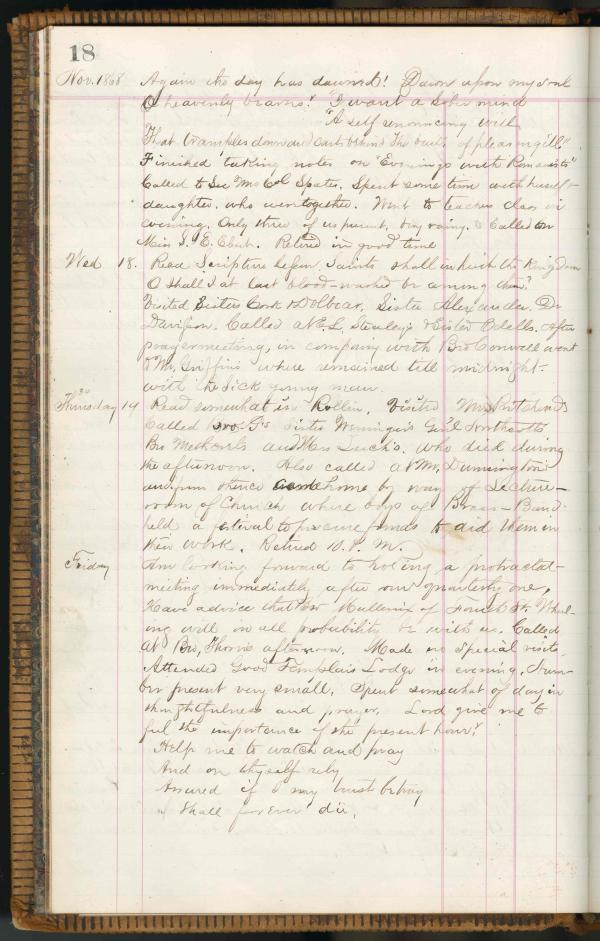 18
Nov. 1868 Again the day has dawned! Dawn upon my soul
O heavenly beams! "I want a sober mind
"A self renouncing will
That tramples down and casts behind The baits of pleasing ill"
Finished taking notes on "Evenings with Romanists"
Called to See Mrs Col Spates. Spent some time with herself &
daughter, who were together. Went to teachers class in
evening. Only three of us present, very rainy. Called on
Miss S. E. Ebert. Retired in good time
Wed 18. Read Scripture lesson. Saints shall inherit the Kingdom
O shall I at last blood-washed be among them?
Visited Sisters Cork & Dolbear, Sister Alexander Dr
Davisson. Called at & Sister Odells. After
prayermeeting, in company with Bro Conwell went
to Mr. Griffins where remained till midnight-
with the sick young man.
Thursday 19 Read somewhat in Rollin, Visited Mrs Pritchards
Called Bro. G's Sister Genl Northcotts
Bro and Mrs Zuck's, who died during
the afternoon. Also called at Mr, Dunnington
and from thence came home by way of Lecture-
room of Church where boys of Brass-Band
held a festival to procure funds to aid them in
their work. Retired 10. P. M.
Friday Am looking forward to holding a protracted-
meeting immediately after our quarterly one,
Have advice that Bro Mullenix of Fourth St Wheel-
ing will in all probability be with us. Called
at Bro, Thorns afternoon. Made no special visits
Attended Good Templars Lodge in evening, Num-
ber present very small, Spent somewhat of day in
thoughtfulness and prayer, Lord give me to
feel the importance of the present hour!
Help me to watch and pray
And on thyself rely
Assured if I my trust betray
I Shall forever die,